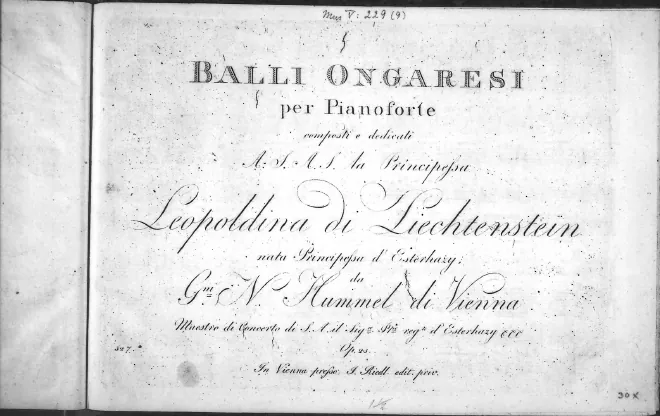 Mus V: 229 (9)
BALLI ONGARESI
per Pianoforte
composti e dedicati
A. S. A. S. la Principeſsa
Leopoldina di Liechtenstein
nata Principeſsa d'Esterhazy;
da
G.m N Hummel di Vienna
Maestro di Concerto di S. A. il Sig.r Prē reg.te d'Esterhazy &c&c&c
Op. 23.
527.
In Vienna preſso J. Riedl edit. priv.
30 x